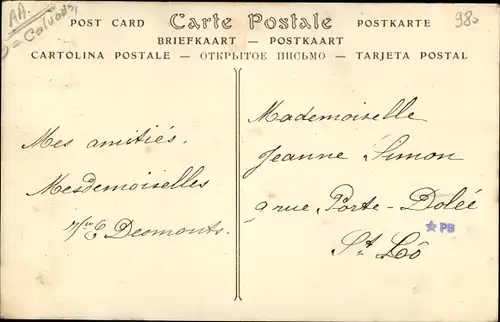 AA.
= Calvados
98
POST CARD Carte Postale POSTKARTE
BRIEFKAART — POSTKAART
CARTOLINA POSTALE — ОТКРЫТОЕ ПИСЬМО — TARJETA POSTAL
Mes amitiés.
Mesdemoiselles
E Desmonts.
Mademoiselle
Jeanne Simon
9 rue Porte-Dolée
St Lô
PB